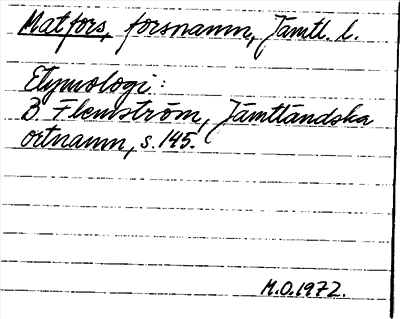 Matfors, forsnamn, Jämtl. l.
Etymologi:
B. Flemström, Jämtländska
ortnamn, s. 145.
M.O. 1972.